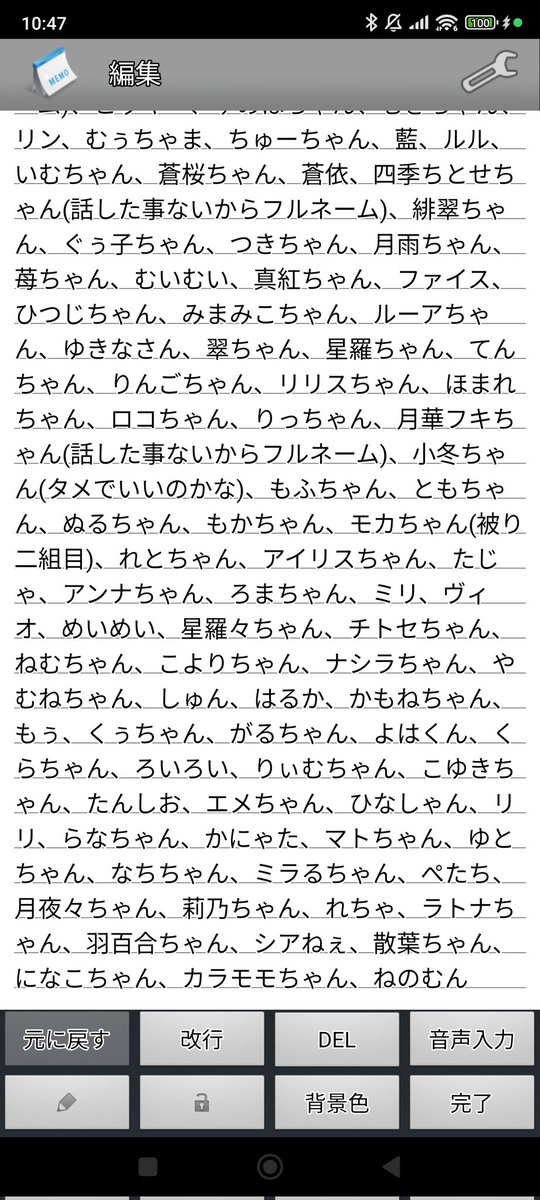 10:47
100
MEMO
編集
リン、むぅちゃま、ちゅーちゃん、藍、ルル、
いむちゃん、蒼桜ちゃん、蒼依、四季ちとせち
ゃん(話した事ないからフルネーム)、緋翠ちゃ
ん、ぐぅ子ちゃん、つきちゃん、月雨ちゃん、
苺ちゃん、むいむい、真紅ちゃん、ファイス、
ひつじちゃん、みまみこちゃん、ルーアちゃ
ん、ゆきなさん、翠ちゃん、星羅ちゃん、てん
ちゃん、りんごちゃん、リリスちゃん、ほまれ
ちゃん、ロコちゃん、りっちゃん、月華フキち
ゃん(話した事ないからフルネーム)、小冬ちゃ
ん(タメでいいのかな)、もふちゃん、ともちゃ
ん、ぬるちゃん、もかちゃん、モカちゃん(被り
二組目)、れとちゃん、アイリスちゃん、たじ
ゃ、アンナちゃん、ろまちゃん、ミリ、ヴィ
オ、めいめい、星羅々ちゃん、チトセちゃん、
ねむちゃん、こよりちゃん、ナシラちゃん、や
むねちゃん、しゅん、はるか、かもねちゃん、
もぅ、くぅちゃん、がるちゃん、よはくん、く
らちゃん、ろいろい、りぃむちゃん、こゆきち
ゃん、たんしお、エメちゃん、ひなしゃん、リ
リ、らなちゃん、かにゃた、マトちゃん、ゆと
ちゃん、なちちゃん、ミラるちゃん、ぺたち、
月夜々ちゃん、莉乃ちゃん、れちゃ、ラトナち
ゃん、羽百合ちゃん、シアねぇ、散葉ちゃん、
になこちゃん、カラモモちゃん、ねのむん
元に戻す 改行 DEL 音声入力
背景色 完了